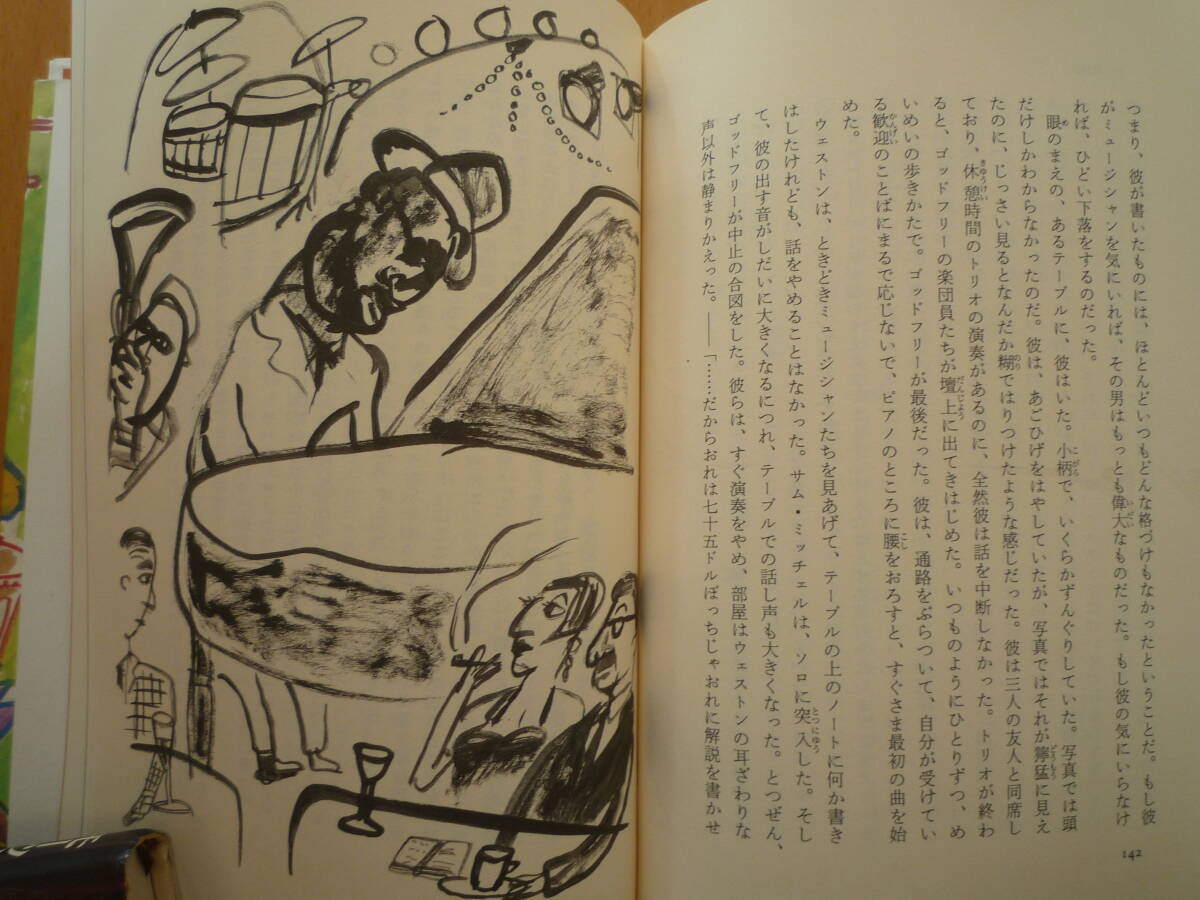 つまり、彼が書いたものには、ほとんどいつもどんな格づけもなかったということだ。もし彼
がミュージシャンを気にいれば、その男はもっとも偉大なものだった。もし彼の気にいらなけ
れば、ひどい下落をするのだった。
眼のまえの、あるテーブルに、彼はいた。小柄で、いくらかずんぐりしていた。写真では頭
だけしかわからなかったのだ。彼は、あごひげをはやしていたが、写真ではそれが獰猛に見え
たのに、じっさい見るとなんだか糊ではりつけたような感じだった。彼は三人の友人と同席し
ており、休憩時間のトリオの演奏があるのに、全然彼は話を中断しなかった。トリオが終わ
ると、ゴッドフリーの楽団員たちが壇上に出てきはじめた。いつものようにひとりずつ、め
いめいの歩きかたで。ゴッドフリーが最後だった。彼は、通路をぶらついて、自分が受けてい
る歓迎のことばにまるで応じないで、ピアノのところに腰をおろすと、すぐさま最初の曲を始
めた。
ウェストンは、ときどきミュージシャンたちを見あげて、テーブルの上のノートに何か書き
はしたけれども、話をやめることはなかった。サム・ミッチェルは、ソロに突入した。そし
て、彼の出す音がしだいに大きくなるにつれ、テーブルでの話し声も大きくなった。とつぜん、
ゴッドフリーが中止の合図をした。彼らは、すぐ演奏をやめ、部屋はウェストンの耳ざわりな
声以外は静まりかえった。――「……だからおれは七十五ドルぽっちじゃおれに解説を書かせ
142